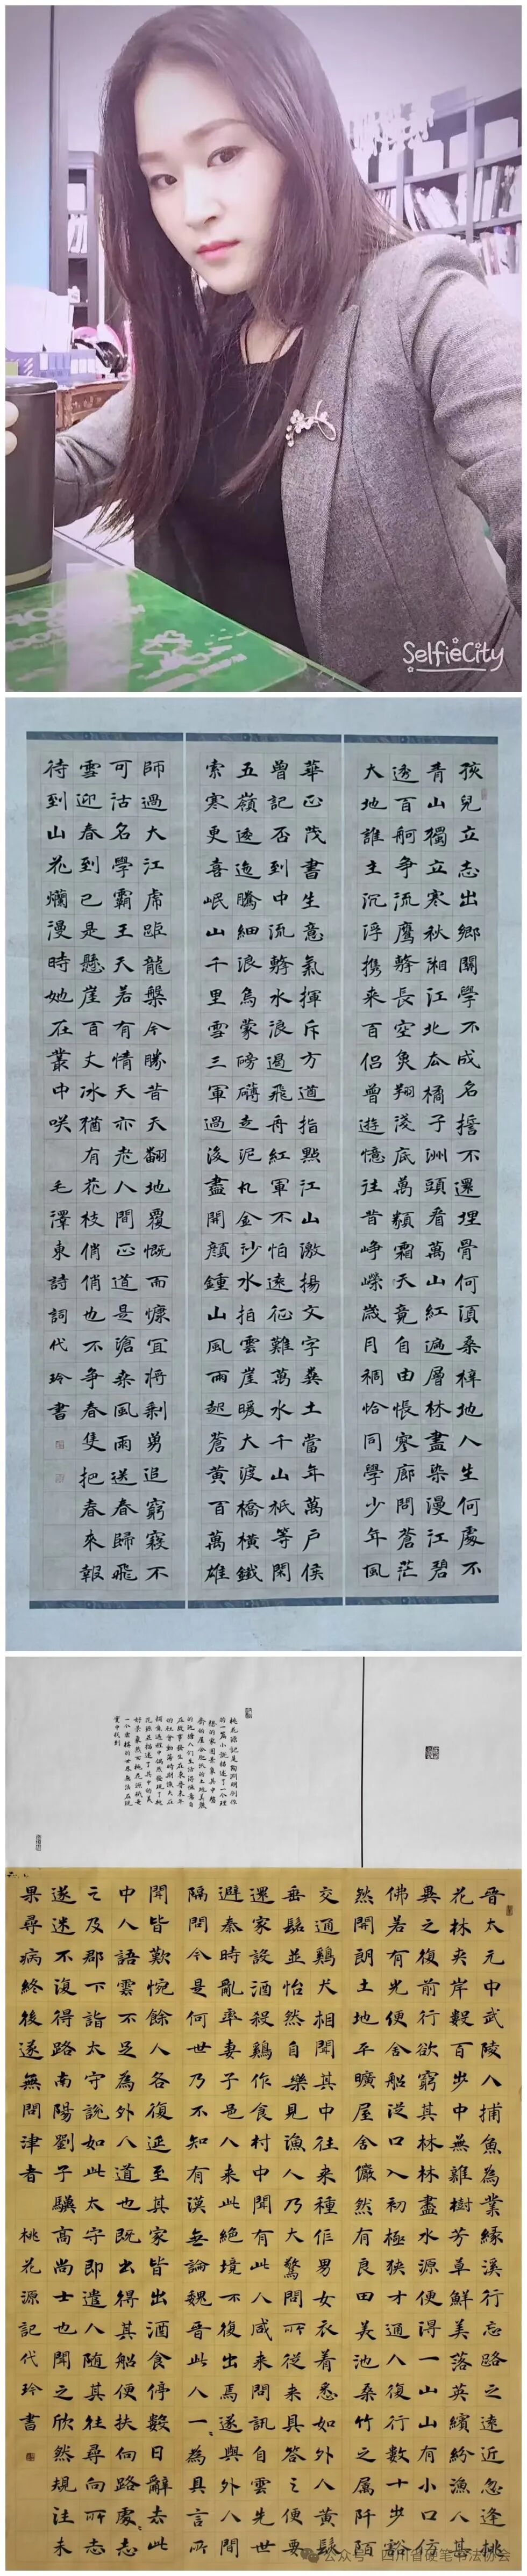 SelfieCity
孩兒立志出鄉關學不成名誓不還埋骨何須桑梓地人生何處不
青山獨立寒秋湘江北去橘子洲頭看萬山紅遍層林盡染漫江碧
透百舸爭流鷹擊長空魚翔淺底萬類霜天競自由悵寥廓問蒼茫
大地誰主沉浮攜來百侶曾遊憶往昔崢嶸歲月稠恰同學少年風
華正茂書生意氣揮斥方遒指點江山激揚文字糞土當年萬戶侯
曾記否到中流擊水浪遏飛舟紅軍不怕遠征難萬水千山祇等閑
五嶺逶迤騰細浪烏蒙磅礴走泥丸金沙水拍雲崖暖大渡橋橫鐵
索寒更喜岷山千里雪三軍過後盡開顏鍾山風雨起蒼黃百萬雄
師過大江虎踞龍槃今勝昔天翻地覆慨而慷宜將剩勇追窮寇不
可沽名學霸王天若有情天亦老人間正道是滄桑風雨送春歸飛
雪迎春到已是懸崖百丈冰猶有花枝俏俏也不爭春隻把春來報
待到山花爛漫時她在叢中咲 毛澤東詩詞代玲書
桃花源記是陶淵明創作
的一篇小說描述了一個理
想的家園意象其中整
齊的屋舍肥沃的土地美麗
的池塘人們生活得恬靜自
在故事發生在東晉末年
的社會動蕩時期漁夫在
捕魚過程中偶然發現了桃
花源並描述了其中的美
好景象然而桃花源祇是
一個虛構的世界無法在現
實中找到
晉太元中武陵人捕魚為業緣溪行忘路之遠近忽逢桃
花林夾岸數百步中無雜樹芳草鮮美落英繽紛漁人甚
異之復前行欲窮其林林盡水源便得一山山有小口仿
佛若有光便舍船從口入初極狹才通人復行數十步豁
然開朗土地平曠屋舍儼然有良田美池桑竹之属阡陌
交通鷄犬相聞其中往來種作男女衣着悉如外人黃髮
垂髫並怡然自樂見漁人乃大驚問所從來具答之便要
還家設酒殺鷄作食村中聞有此人咸來問訊自雲先世
避秦時亂率妻子邑人来此絕境不復出焉遂與外人間
隔問今是何世乃不知有漢無論魏晉此人一〻為具言所
聞皆歎惋餘人各復延至其家皆出酒食停數日辭去此
中人語雲不足為外人道也既出得其船便扶向路處〻志
之及郡下詣太守說如此太守即遣人隨其往尋向所志
遂迷不復得路南陽劉子驥高尚士也聞之欣然規往未
果尋病終後遂無問津者 桃花源記代玲書
公众号 · 四川省硬笔书法协会